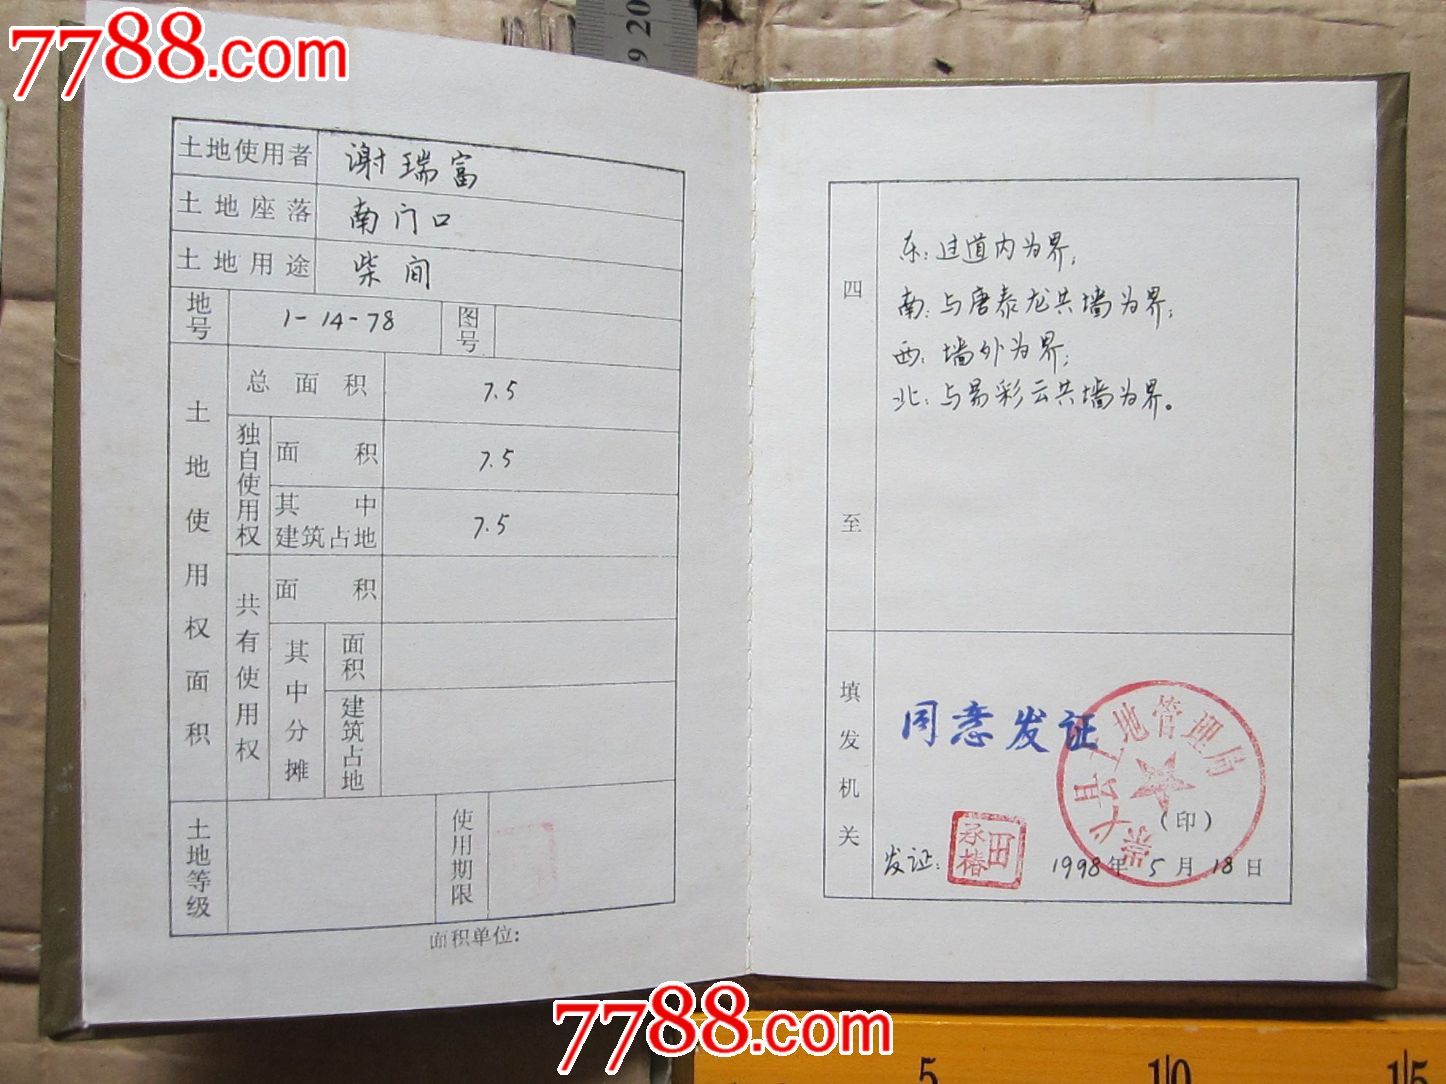 7788.com
9 20
土地使用者 谢瑞富
土地座落 南门口
土地用途 柴间
地号 1-14-78 图号
土地使用权面积
总面积 7.5
独自使用权
面积 7.5
其中建筑占地 7.5
共有使用权
面积
其中分摊
面积
建筑占地
土地等级
使用期限
面积单位:
四至
东: 过道内为界;
南: 与唐泰龙共墙为界;
西: 墙外为界;
北: 与易彩云共墙为界。
填发机关
同意发证
崇仁县土地管理局
(印)
发证: 田承椿
1998年5月18日
7788.com
5 10 15